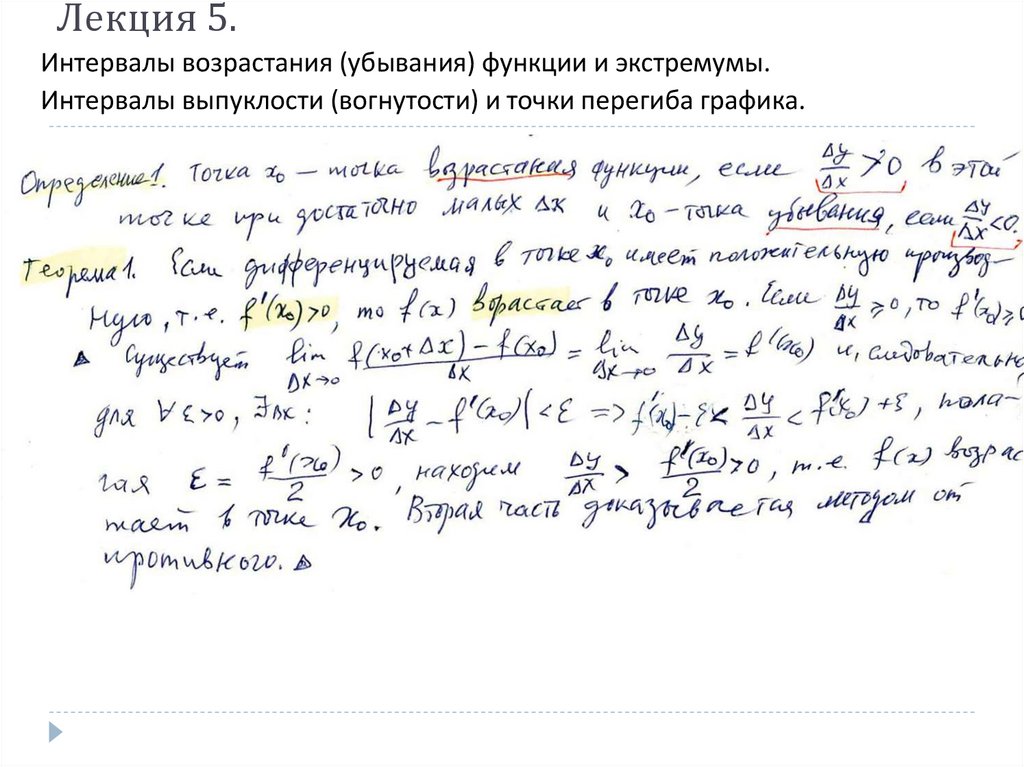 Лекция 5.
Интервалы возрастания (убывания) функции и экстремумы.
Интервалы выпуклости (вогнутости) и точки перегиба графика.
Определение 1. Точка x₀ – точка возрастания функции, если Δy/Δx > 0 в этой
точке при достаточно малых Δx и x₀ – точка убывания, если Δy/Δx < 0.
Теорема 1. Если дифференцируемая в точке x₀ имеет положительную производ-
ную, т.е. f'(x₀)>0, то f(x) возрастает в точке x₀. Если Δy/Δx ≥ 0, то f'(x₀) ≥ 0
Δ Существует lim Δx→0 (f(x₀+Δx) – f(x₀))/Δx = lim Δx→0 Δy/Δx = f'(x₀) и, следовательно
для ∀ ε>0, ∃Δx: |Δy/Δx – f'(x₀)| < ε => f'(x₀) – ε < Δy/Δx < f'(x₀) + ε, пола-
гая ε = f'(x₀)/2 > 0, находим Δy/Δx > f'(x₀)/2 > 0, т.е. f(x) возрас
тает в точке x₀. Вторая часть доказывается методом от
противного. Δ